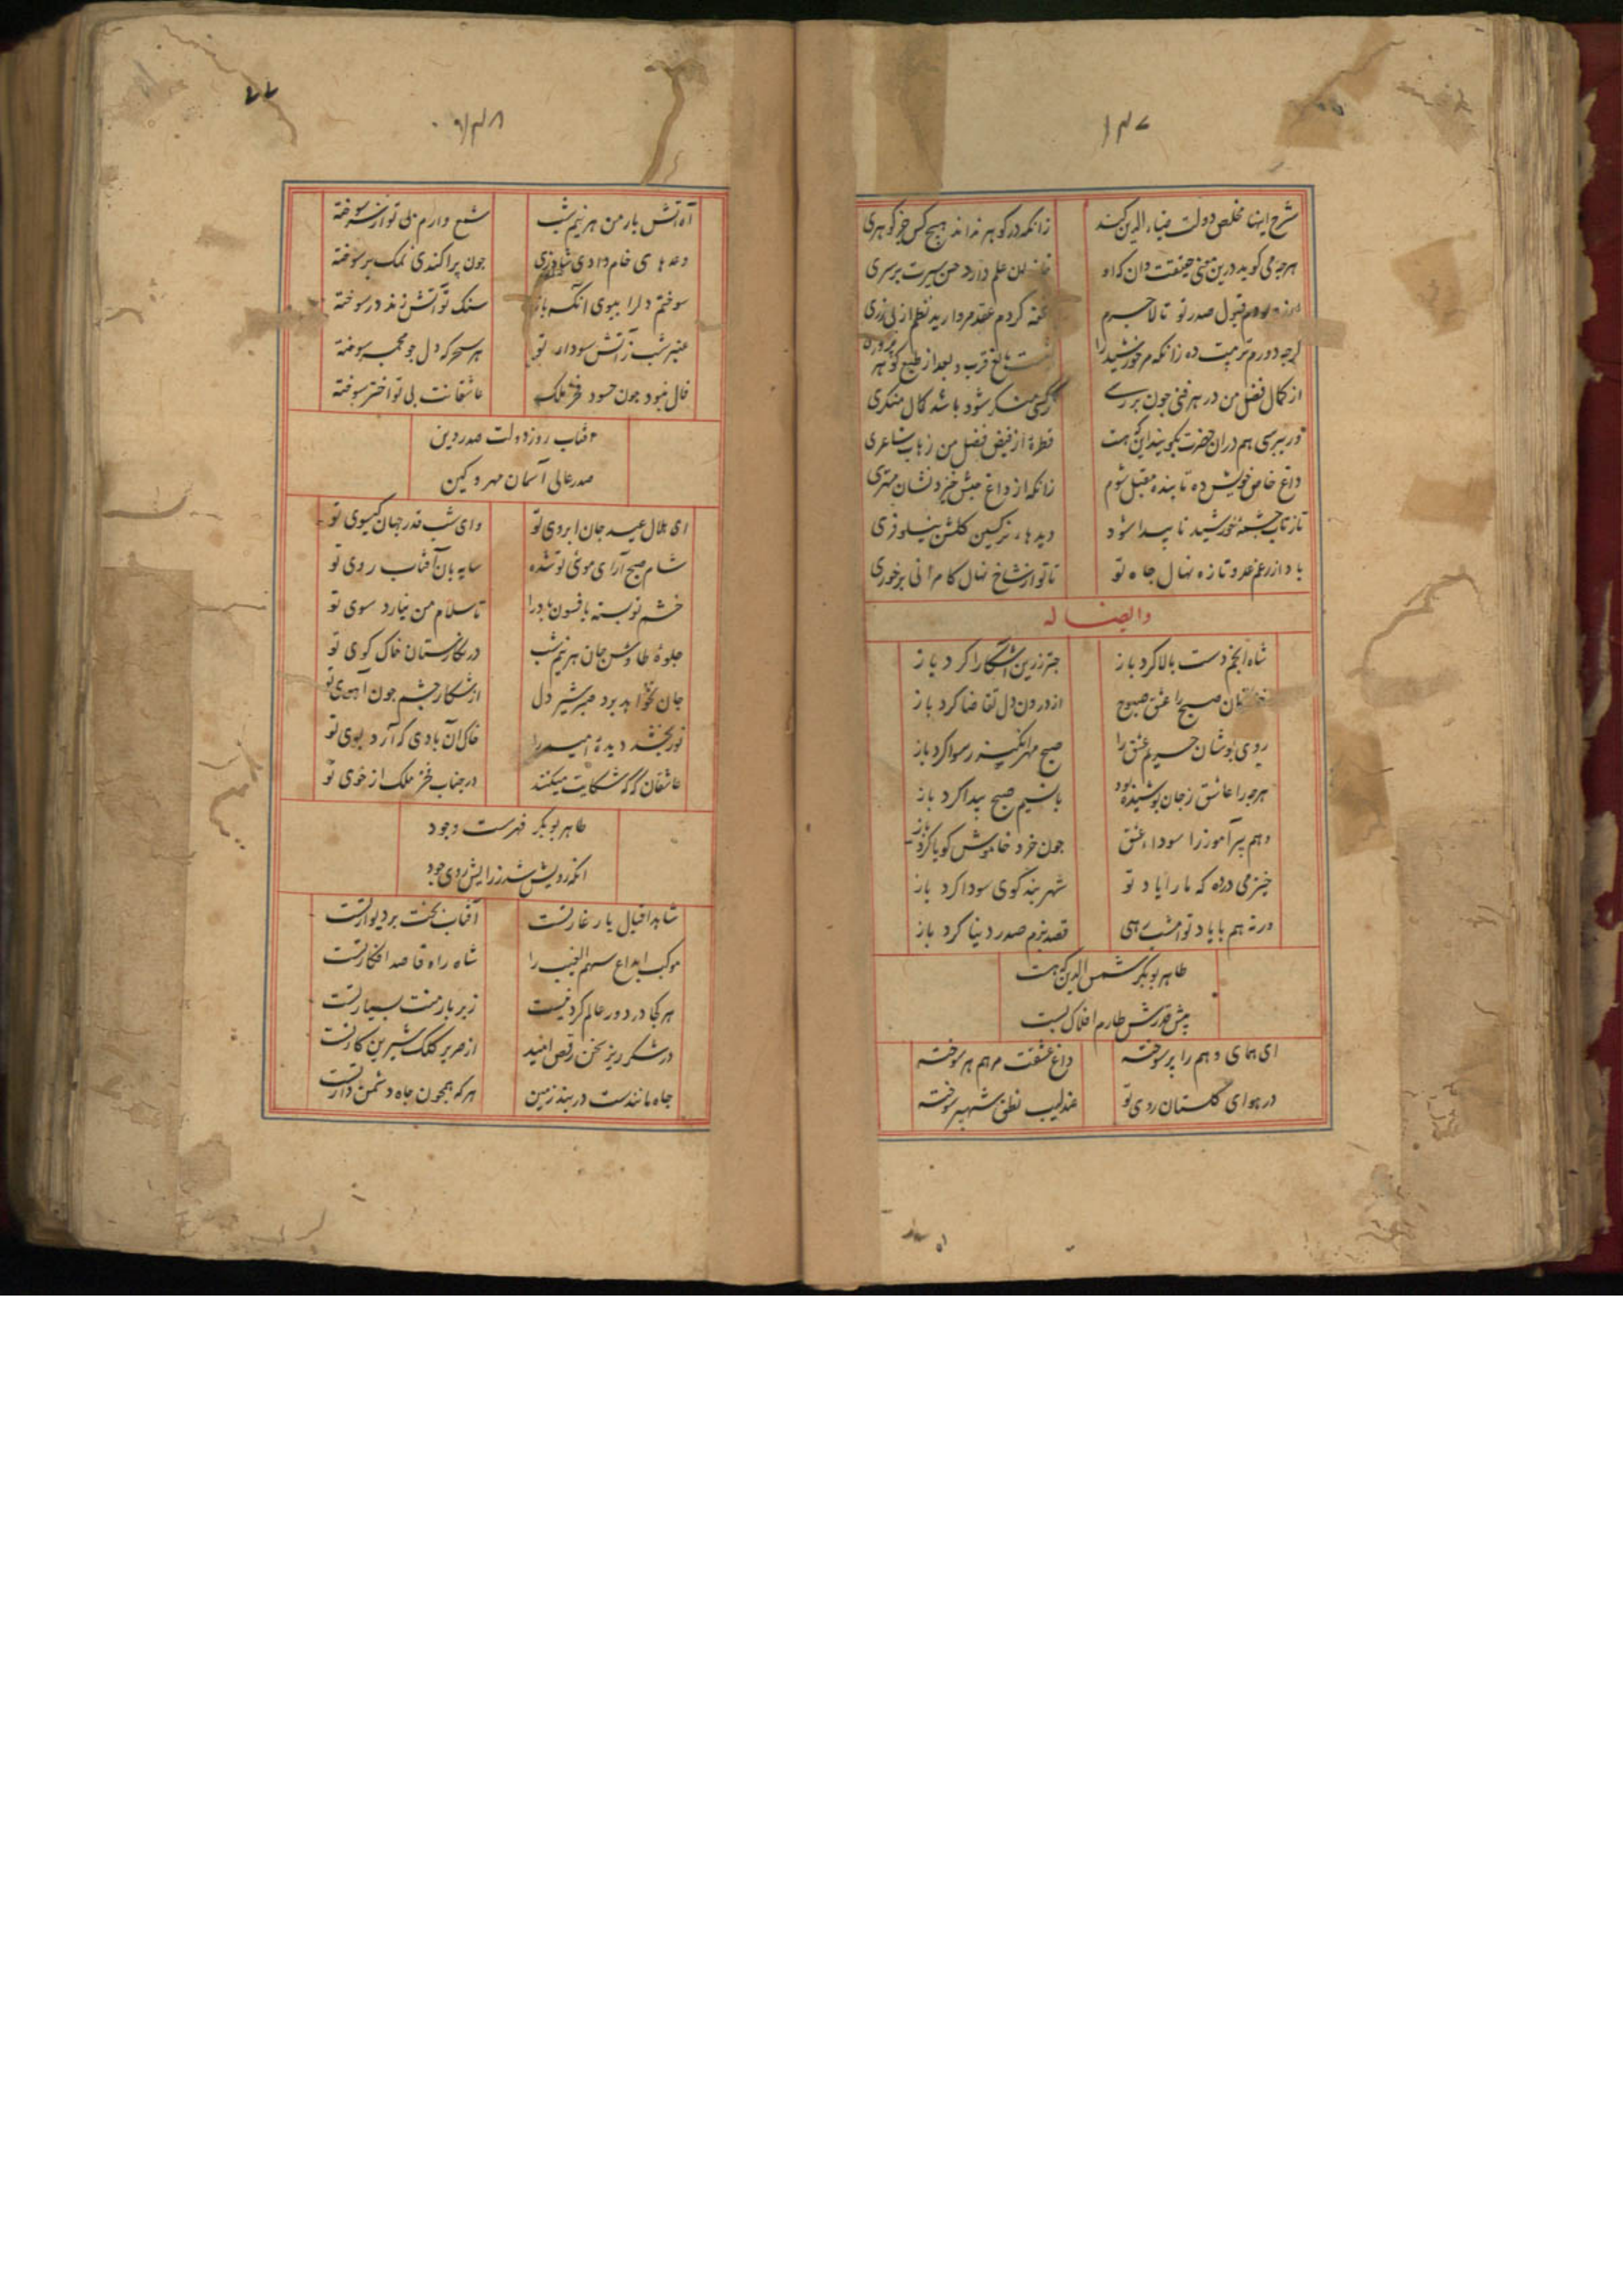 ۱۴۷
شرح اینها مخلص دولت ضیاء الدین کند
زانکه در گوهر نداند هیچ کس جز گوهری
هرچه می گوید درین معنی حقیقت دان که او
علم دارد حسن سیرت بر سری
قبول صدر تو تا لاجرم
کردم عقد مروارید نظم از بی زری
گرچه دورم تربیت ده زانکه مر خورشید را
قرب و بعد از طبع گوهر پروری
از کمال فضل من در هر فنی چون بررسی
منکر شود باشد کمال منکری
ور بپرسی هم دران حضرت بگویند این که هست
قطرهٔ از فیض فضل من زهاب شاعری
داغ خاص خویش ده تا بنده مقبل شوم
زانکه از داغ حبش خیزد نشان مهتری
تا ز تاب چشمهٔ خورشید نا پیدا شود
دیدهاء نرکسین کلشن نیلوفری
باد از رغم عدو تازه نهال جاه تو
تا تو از شاخ نهال کامرانی برخوری
وایضا له
شاه انجم دست بالا کرد باز
چتر زرین آشکارا کرد باز
صبح را عشق صبوح
از درون دل تقاضا کرد باز
روی پوشان حریم عشق را
صبح مهر انگیز رسوا کرد باز
هرچه را عاشق ز جان پوشیده بود
با نسیم صبح پیدا کرد باز
وهم پیر آموز را سوداء عشق
چون خرد خاموش کویا کرد باز
خیز می درده که ما را یاد تو
شهر بند کوی سودا کرد باز
ورنه هم با یاد تو امشب همی
قصد بزم صدر دنیا کرد باز
طاهر بوبکر شمس الدین که هست
پیش قدرش طارم افلاک پست
ای همای وهم را پر سوخته
داغ عشقت مرهم هر سوخته
در هوای کلستان روی تو
عندلیب نطق شهپر سوخته
۱۴۸
آه آتش بار من هر نیم شب
شمع وارم بی تو از سر سوخته
وعدهای خام دادی شاد زی
چون پراکندی نمک بر سوخته
سوختم دل را ببوی آنکه باز
سنک تو آتش زند در سوخته
عنبر شب ز آتش سوداء تو
هر سحر که دل چو مجمر سوخته
فال نبود چون حسود فخر ملک
عاشقانت بی تو اختر سوخته
آفتاب روز دولت صدر دین
صدر عالی آسمان مهر و کین
ای هلال عید جان ابروی تو
وای شب قدر جهان کیسوی تو
شام صبح آرای موئی تو شده
سایه بان آفتاب روی تو
خشم تو بسته بافسون باد را
تا سلام من نیارد سوی تو
جلوهٔ طاوس جان هر نیم شب
در نکارستان خاک کوی تو
جان نخواهد برد صبر شیر دل
از شکار چشم چون آهوی تو
نور بخشد دیدهٔ امید را
خاک آن بادی که آرد بوی تو
عاشقان کر که شکایت میکنند
در جناب فخر ملک از خوی تو
طاهر بوبکر فهرست وجود
آنکه رویش شد ز رایش روی جود
شاهد اقبال یار غار تست
آفتاب بخت بر دیوار تست
موکب ابداع سهم الغیب را
شاه راه قاصد افکار تست
هر کجا در دور عالم کرد نیست
زیر بار منت بسیار تست
در شکر ریز سخن رقص امید
از صریر کلک شیرین کار تست
جاه مانندست در بند زمین
هر که همچون جاه دشمن دار تست